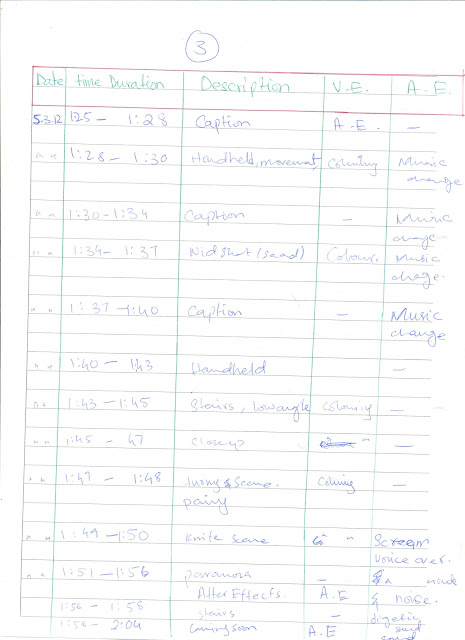 3
Date Time Duration Description V.E. A.E.
5.3.12 1:25 – 1:28 Caption A.E. —
" " 1:28 – 1:30 Handheld, movement, Music
change
" " 1:30 – 1:34 Caption — Music
change
" " 1:34 – 1:37 Midshot (saad) Colour. Music
change.
" " 1:37 – 1:40 Caption — Music
change
" " 1:40 – 1:43 Handheld —
" " 1:43 – 1:45 Stairs, low angle —
" " 1:45 – 47 Closeup " —
" " 1:47 – 1:48 scene. —
" " 1:49 – 1:50 Knife scene " Scream
voice over.
" " 1:51 – 1:56 —
After Effects. A.E & noise.
1:56 – 1:58 stairs —
1:58 – 2:04 Coming soon A.E